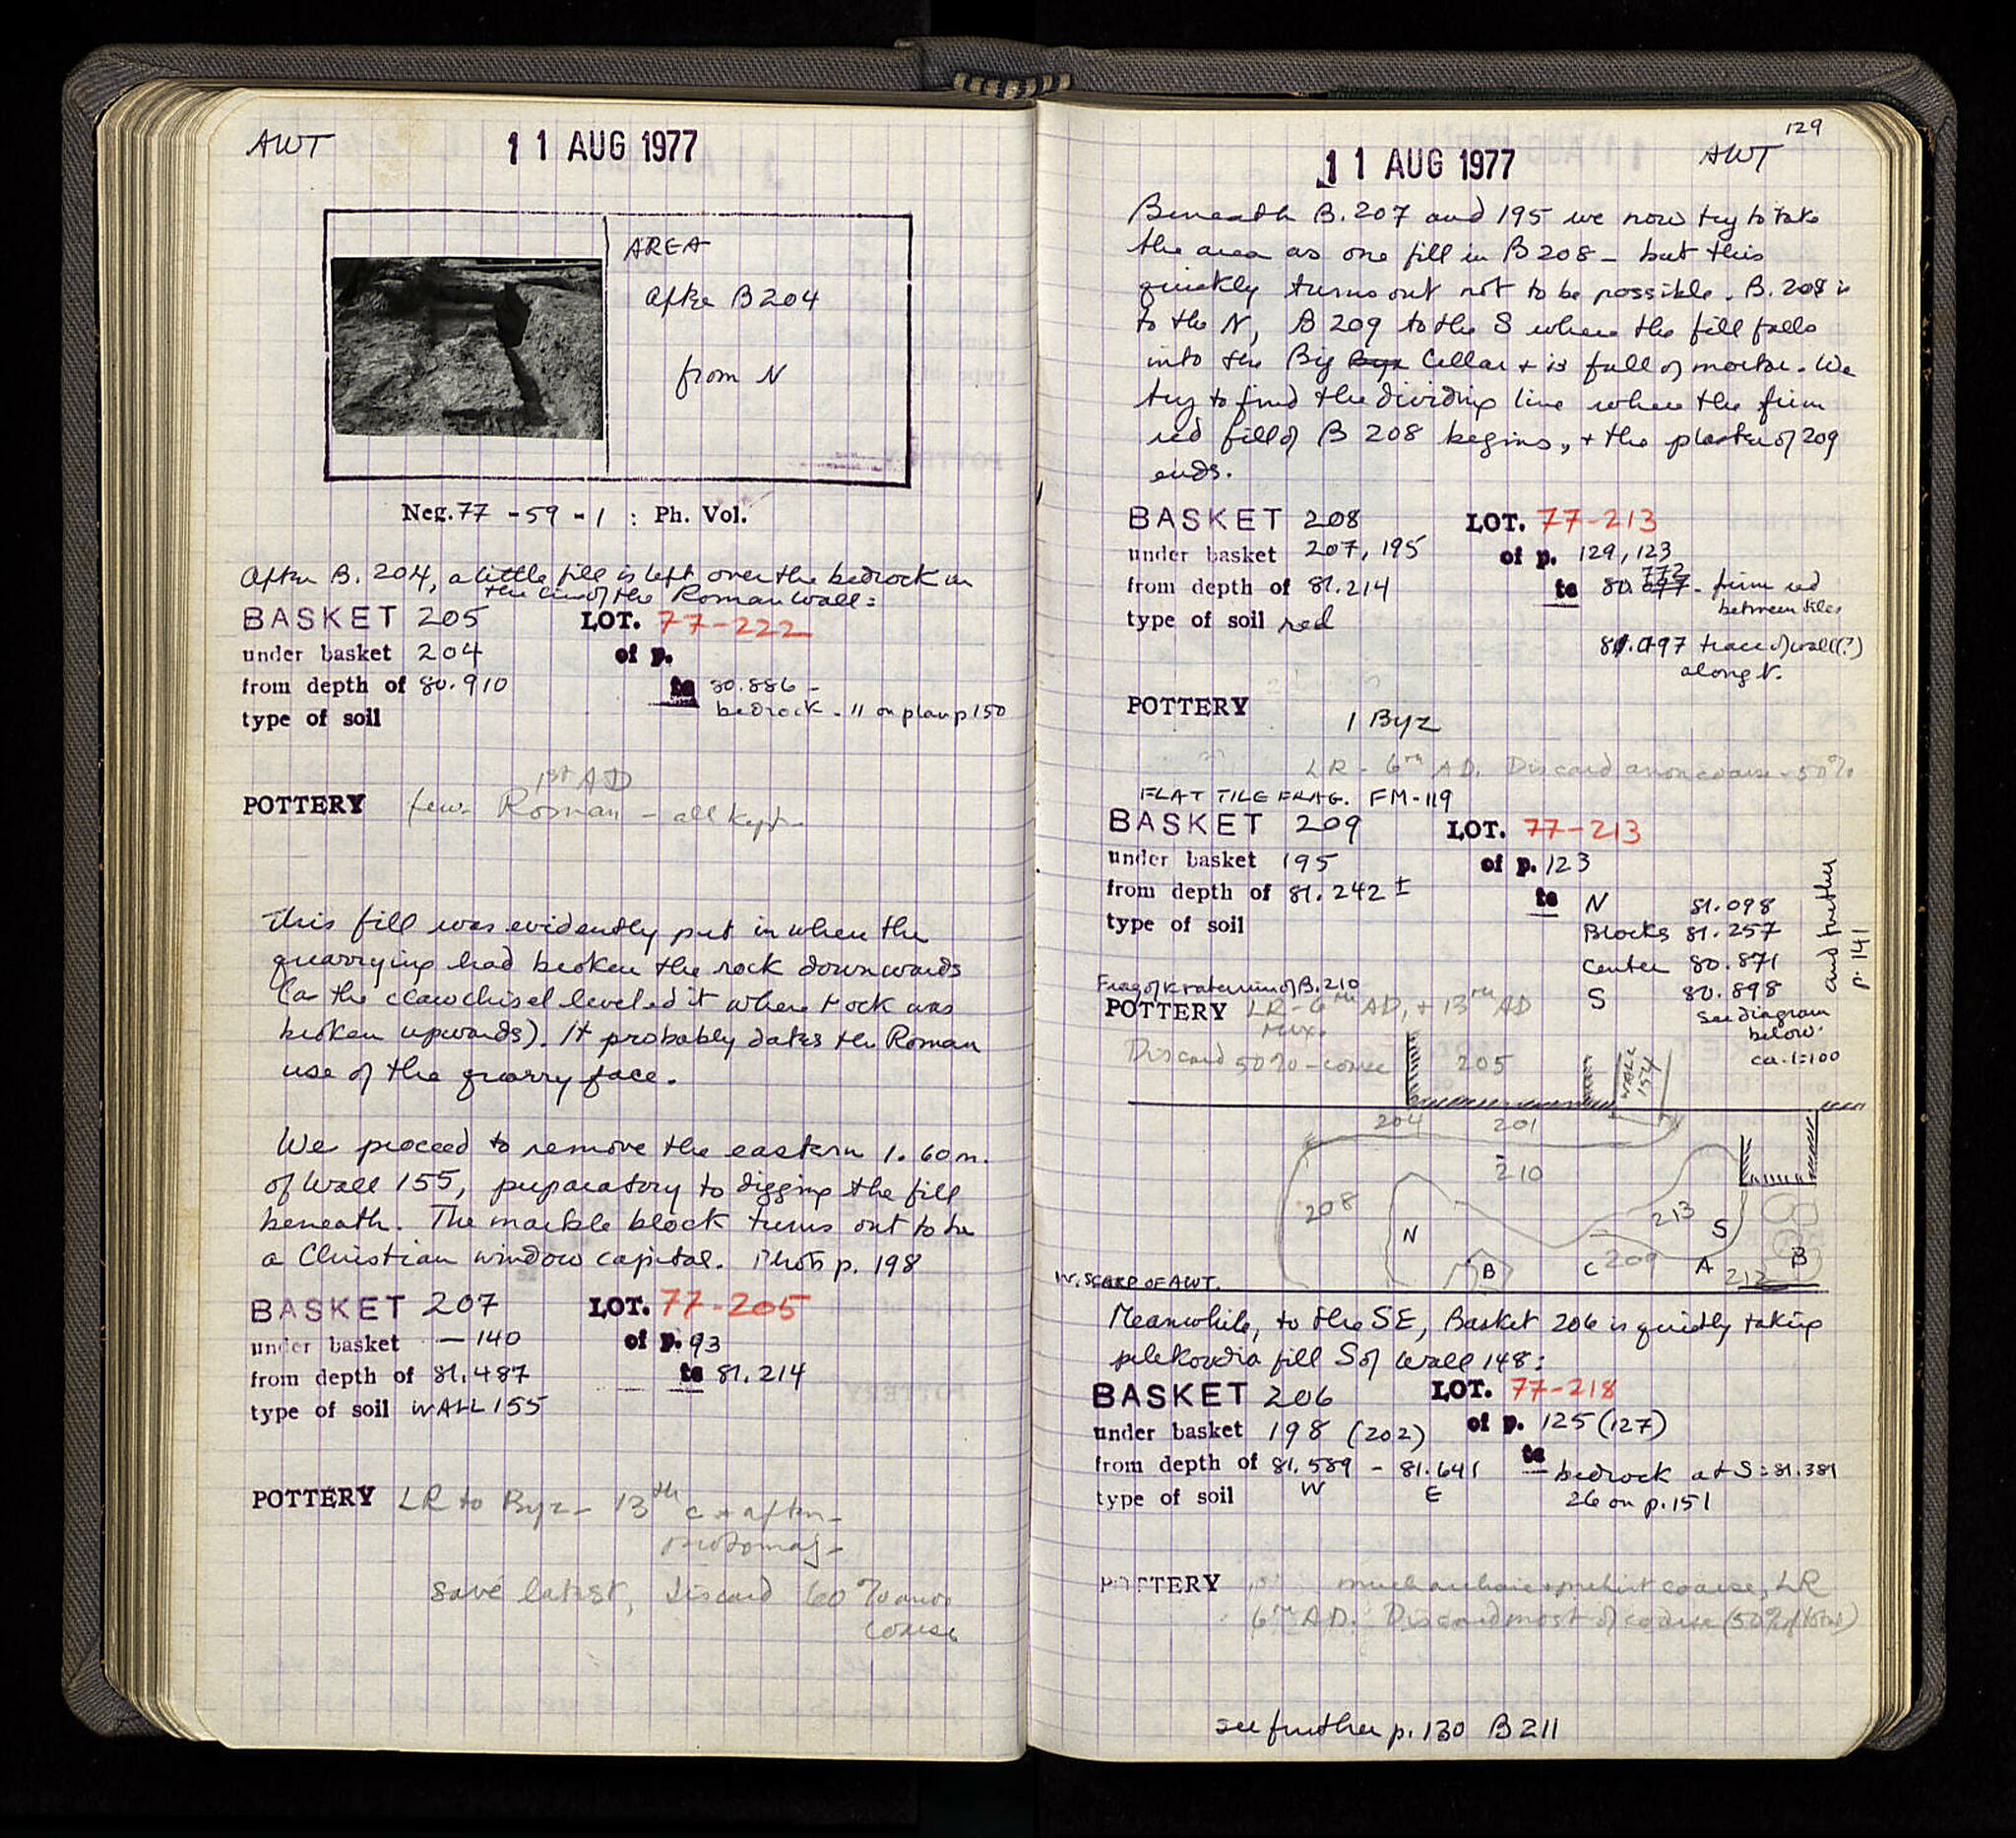 AWT 11 AUG 1977
AREA
After B204
from N
Neg. 77 - 59 - 1 : Ph. Vol.
After B. 204, a little fill is left over the bedrock in
the line of the Roman wall:
BASKET 205 LOT. 77-222
under basket 204 of p.
from depth of 80.910 to 80.886 -
bedrock. 11 on plan p 150
type of soil
1st AD
POTTERY few Roman - all kept -
This fill was evidently put in when the
quarrying had broken the rock downwards
(as the clawchisel leveled it where rock was
broken upwards). It probably dates the Roman
use of the quarry face.
We proceed to remove the eastern 1.60 m.
of Wall 155, preparatory to digging the fill
beneath. The marble block turns out to be
a Christian window capital. Photo p. 198
BASKET 207 LOT. 77-205
under basket - 140 of p. 93
from depth of 81.487 to 81.214
type of soil WALL 155
POTTERY LR to Byz - 13th c + after -
protomaj -
save latest, discard 60%
coarse
129
11 AUG 1977 AWT
Beneath B. 207 and 195 we now try to take
the area as one fill in B 208 - but this
quickly turns out not to be possible. B. 208 is
to the N, B 209 to the S where the fill falls
into the Big Cellar + is full of mortar. We
try to find the dividing line where the firm
red fill of B 208 begins, + the plaster of 209
ends.
BASKET 208 LOT. 77-213
under basket 207, 195 of p. 129, 123
from depth of 81.214 to 80.772 - firm red
between tiles
type of soil red
81.097 trace of wall(?)
along N.
POTTERY 1 Byz
LR - 6th AD. Discard coarse - 50%
FLAT TILE FRAG. FM-119
BASKET 209 LOT. 77-213
under basket 195 of p. 123
from depth of 81.242 ± to N 81.098
type of soil Blocks 81.257
Center 80.871
S 80.898
and further p. 141
Frag of krater in of B. 210
POTTERY LR - 6th AD, + 13th AD
mix.
See diagram
below.
ca. 1:100
Discard 50% - coarse
205
WALL 154
204 201
210
208 N 213 S
B C 209 A B
212
W. SCARP OF AWT.
Meanwhile, to the SE, Basket 206 is quietly taking
plekoudia fill S of Wall 148:
BASKET 206 LOT. 77-218
under basket 198 (202) of p. 125 (127)
from depth of 81.589 - 81.641 to bedrock at S = 81.381
type of soil W E 26 on p. 151
POTTERY much archaic + prehist coarse, LR
6th AD. Discard most of coarse (50% of total)
see further p. 130 B 211